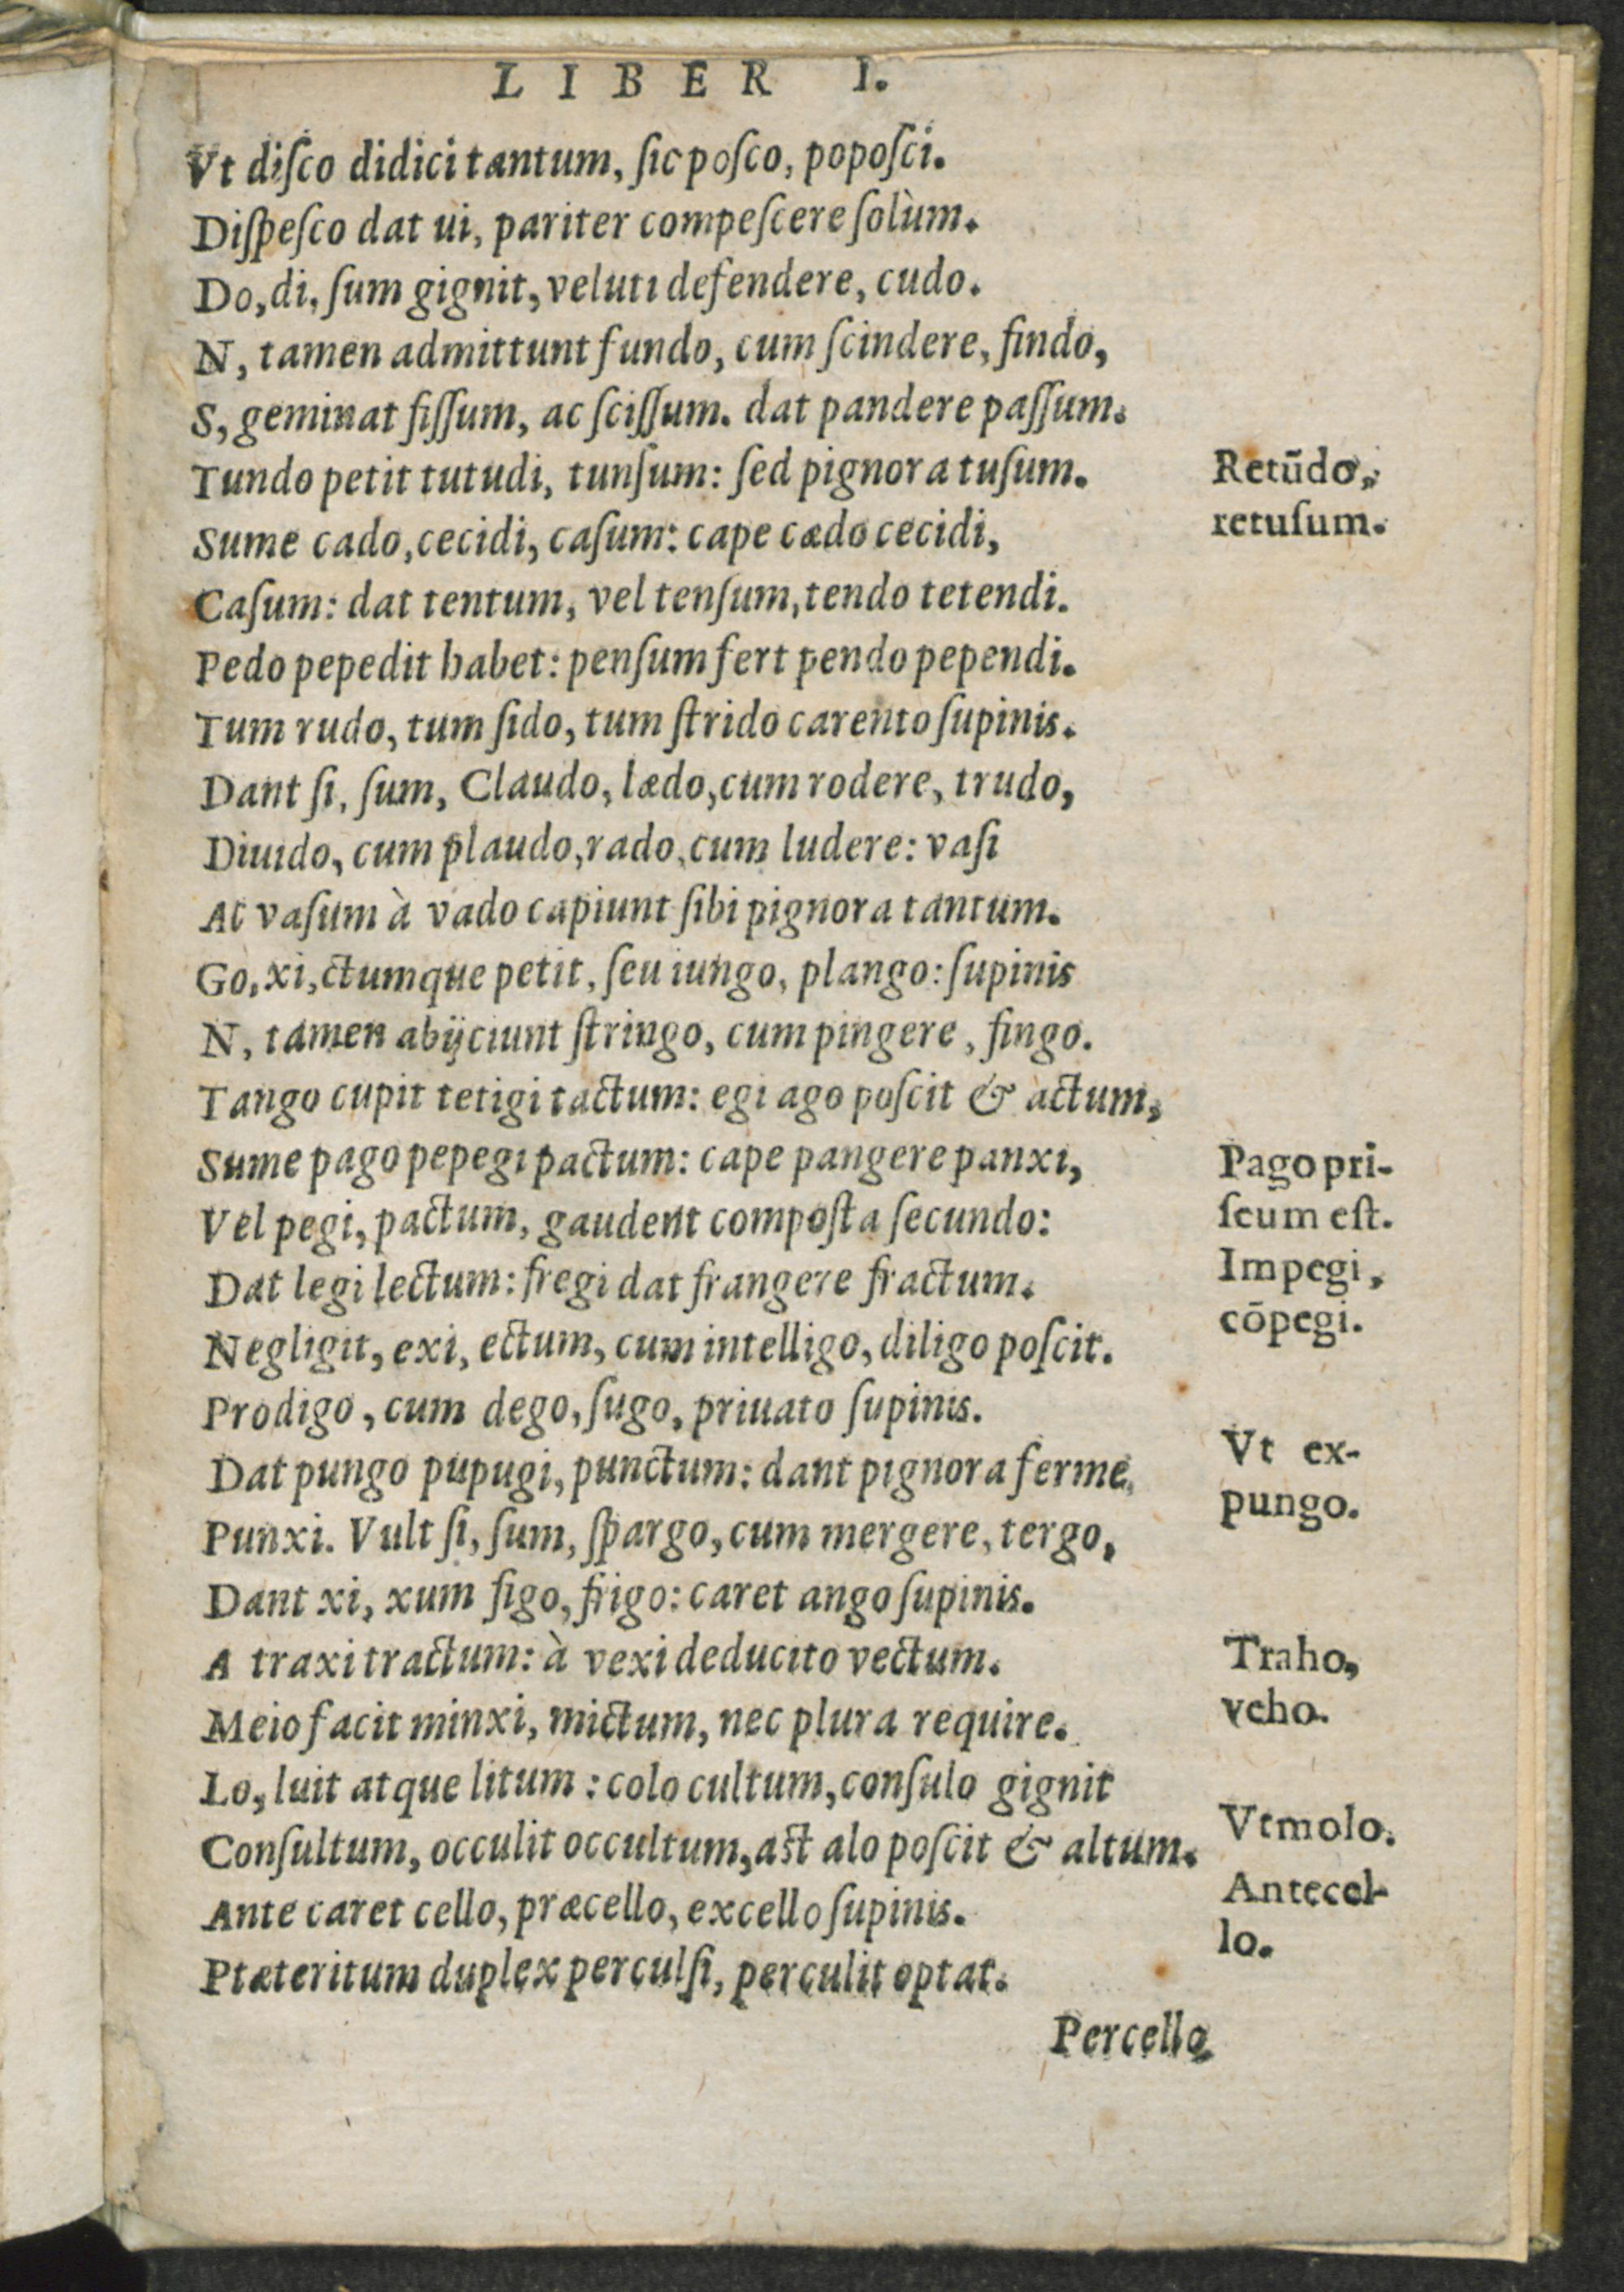 LIBER I.
Vt diſco didici tantum, ſic poſco, popoſci.
Diſpeſco dat ui, pariter compeſcere ſolùm.
Do, di, ſum gignit, veluti defendere, cudo.
N, tamen admittunt fundo, cum ſcindere, findo,
S, geminat fiſſum, ac ſciſſum. dat pandere paſſum.
Tundo petit tutudi, tunſum: ſed pignora tuſum.
Retūdo,
retuſum.
Sume cado, cecidi, caſum: cape cædo cecidi,
Caſum: dat tentum, vel tenſum, tendo tetendi.
Pedo pepedit habet: penſum fert pendo pependi.
Tum rudo, tum ſido, tum ſtrido carento ſupinis.
Dant ſi, ſum, Claudo, lædo, cum rodere, trudo,
Diuido, cum plaudo, rado, cum ludere: vaſi
Ac vaſum à vado capiunt ſibi pignora tantum.
Go, xi, ctumque petit, ſeu iungo, plango: ſupinis
N, tamen abijciunt ſtringo, cum pingere, fingo.
Tango cupit tetigi tactum: egi ago poſcit & actum,
Sume pago pepegi pactum: cape pangere panxi,
Pago pri-
ſcum eſt.
Vel pegi, pactum, gaudent compoſta ſecundo:
Impegi,
cōpegi.
Dat legi lectum: fregi dat frangere fractum.
Negligit, exi, ectum, cum intelligo, diligo poſcit.
Prodigo, cum dego, ſugo, priuato ſupinis.
Dat pungo pupugi, punctum: dant pignora ferme,
Vt ex-
pungo.
Punxi. Vult ſi, ſum, ſpargo, cum mergere, tergo,
Dant xi, xum figo, frigo: caret ango ſupinis.
A traxi tractum: à vexi deducito vectum.
Traho,
veho.
Meio facit minxi, mictum, nec plura require.
Lo, luit atque litum: colo cultum, conſulo gignit
Vt molo.
Conſultum, occulit occultum, aſt alo poſcit & altum.
Ante caret cello, præcello, excello ſupinis.
Antecel-
lo.
Ptæteritum duplex perculſi, perculit optat.
Percello